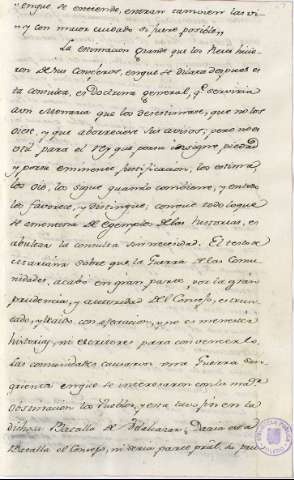 y en que se entiende, entran tambien las vi-
y con mayor cuidado si fuere posible,,
La estimacion grande que los Reyes hicie
ron de sus Consejeros, en que se dilata despues
la consulta, es Doctrina general, q.e serviria
aun Monarca que los desestimase, que no los
oiese, y que aborreciese sus avisos, pero no es
para el Rey que por su insigne, piedad
y por su eminente justificacion, los estima,
los oie, los sigue quando combiene, y en todo
los favorece, y distingue; conque todo lo que
se amontona de egemplos de las historias, es
abultar la consulta sin necesidad. El
sobre que la Guerra de las Comu
nidades, acabó en gran parte, por la gran
prudencia, y autoridad del Consejo, es
y no es menester
historias, ni escritores para convencerlo.
Las comunidades causaron una Guerra san
grienta en que se interesaron con la maior
obstinacion los Pueblos, y esta tuvo fin en la
dichosa Batalla de Villalar,
Batalla el Consejo, ni seria parte pral. su pru